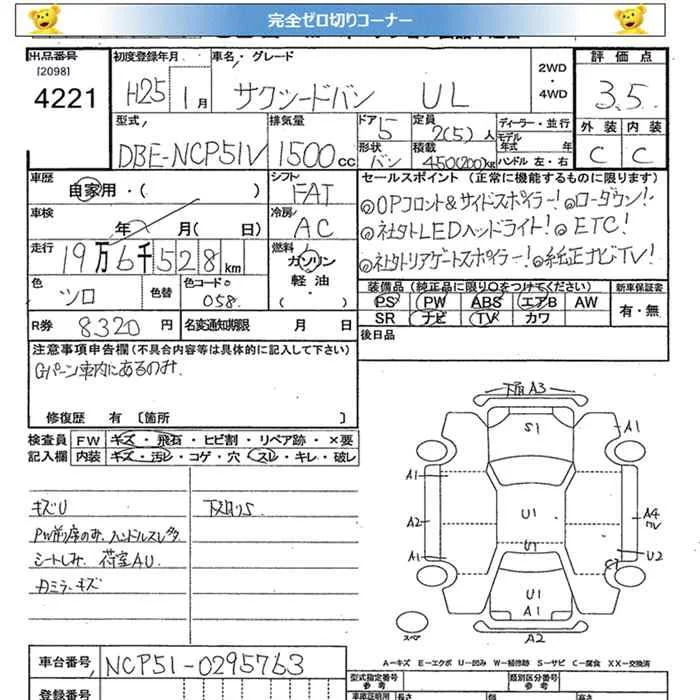 完全ゼロ切りコーナー
出品番号
[2098]
4221
初度登録年月
H25 1月
車名・グレード
サクシードバン UL
2WD・4WD
評価点
3.5
外装 内装
C C
型式
DBE-NCP51V
排気量
1500cc
ドア 5
形状 バン
定員 2(5)人
積載 450(200)kg
ディーラー・並行
モデル年式 年
ハンドル 左・右
車歴
自家用・( )
車検
年 月( 日)
走行
19万6千528km
シフト
FAT
冷房
AC
燃料
ガソリン
軽油
・
色
シロ
色替
色コードNo
058
R券 8320円
名変通知期限 月 日
セールスポイント(正常に機能するものに限ります)
◎OPフロント&サイドスポイラー!◎ローダウン!
◎社外LEDヘッドライト!◎ETC!
◎社外リアゲートスポイラー!◎純正ナビTV!
装備品(純正品に限り○をつけてください)
PS PW ABS エアB AW
SR ナビ TV カワ
新車保証書
有・無
後日品
注意事項申告欄(不具合内容等は具体的に記入して下さい)
Gパーン車内にあるのみ
修復歴 有[箇所 ]
検査員記入欄
FW キズ・飛石・ヒビ割・リペア跡・×要
内装 キズ・汚レ・コゲ・穴・スレ・キレ・破レ
キズU
下回りS
PW前席のみ ハンドルスレ多
シートしみ 荷室AU
カミラーキズ
下角A3
S1
A1
A1
A2
U1
A4
U1
A1
U2
U1
A1
A2
スペア
A-キズ E-エクボ U-凹み W-補修跡 S-サビ C-腐食 XX-交換済
車台番号 NCP51-0295763
登録番号
型式指定番号 参考
類別区分番号 参考
車庫証明用 長さ 幅 高さ